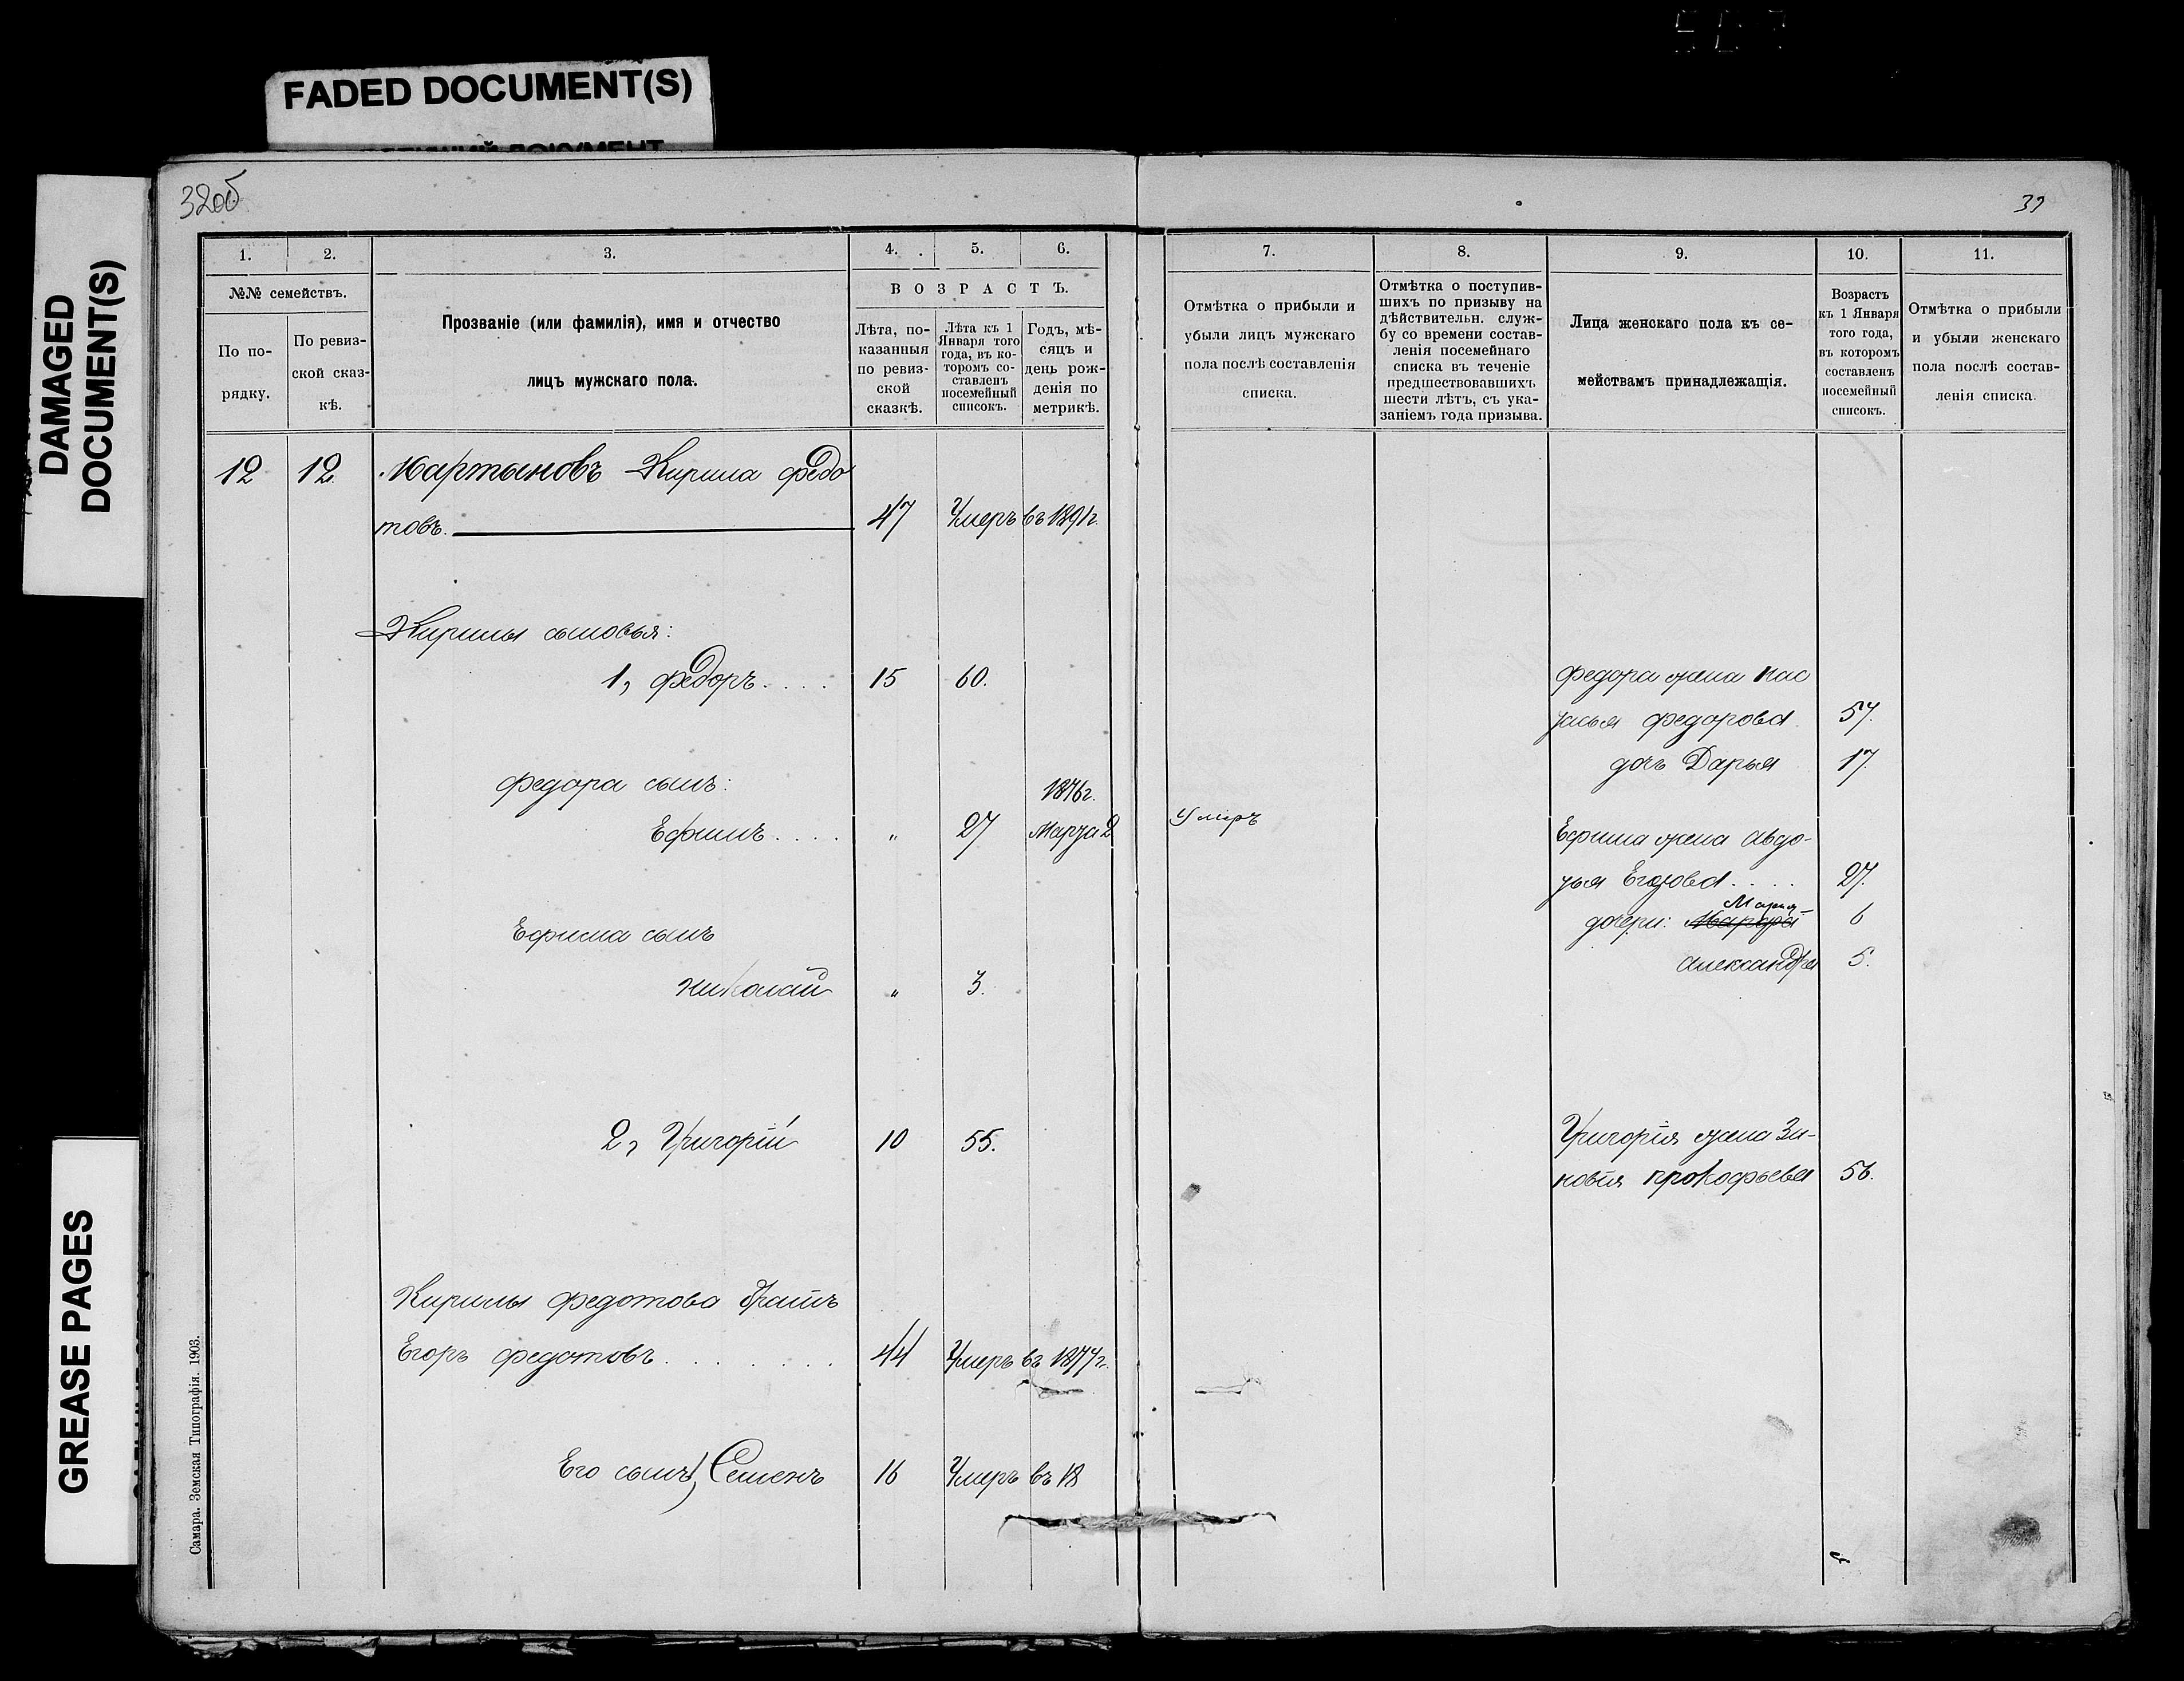 FADED DOCUMENT(S)
DAMAGED
DOCUMENT(S)
GREASE PAGES
32об
33
1.
2.
3.
4.
5.
6.
7.
8.
9.
10.
11.
№№ семействъ.
По по-
рядку.
По ревиз-
ской сказ-
кѣ.
Прозваніе (или фамилія), имя и отчество
лицъ мужскаго пола.
ВОЗРАСТЪ.
Лѣта, по-
казанныя
по ревиз-
ской
сказкѣ.
Лѣта къ 1
Января того
года, въ ко-
торомъ со-
ставленъ
посемейный
списокъ.
Годъ, мѣ-
сяцъ и
день рож-
денія по
метрикѣ.
Отмѣтка о прибыли и
убыли лицъ мужскаго
пола послѣ составленія
списка.
Отмѣтка о поступив-
шихъ по призыву на
дѣйствительн. служ-
бу со времени состав-
ленія посемейнаго
списка въ теченіе
предшествовавшихъ
шести лѣтъ, съ ука-
заніемъ года призыва.
Лица женскаго пола къ се-
мействамъ принадлежащія.
Возрастъ
къ 1 Января
того года,
въ которомъ
составленъ
посемейный
списокъ.
Отмѣтка о прибыли
и убыли женскаго
пола послѣ состав-
ленія списка.
12 12 Мартыновъ Кирила Федо
товъ. 47 Умеръ въ 1891г.
Кирилы сыновья:
1, Федоръ.... 15 60. Федора жена Нас
тасья Федорова 57.
дочь Дарья 17.
Федора сынъ: 1876г.
Ефимъ.... " 27 Марта 2 Умеръ Ефима жена Авдо-
тья Егорова.... 27.
Мария
дочери: Марфа 6
Александра 5.
Ефима сынъ
Николай " 3.
2, Григорій 10 55. Григорія жена Зи-
новія Прокофьева 56.
Кирилы Федотова братъ
Егоръ Федотовъ....... 44 Умеръ въ 1877г.
Его сынъ, Семенъ 16 Умеръ въ 18
Самара. Земская Типографія. 1903.